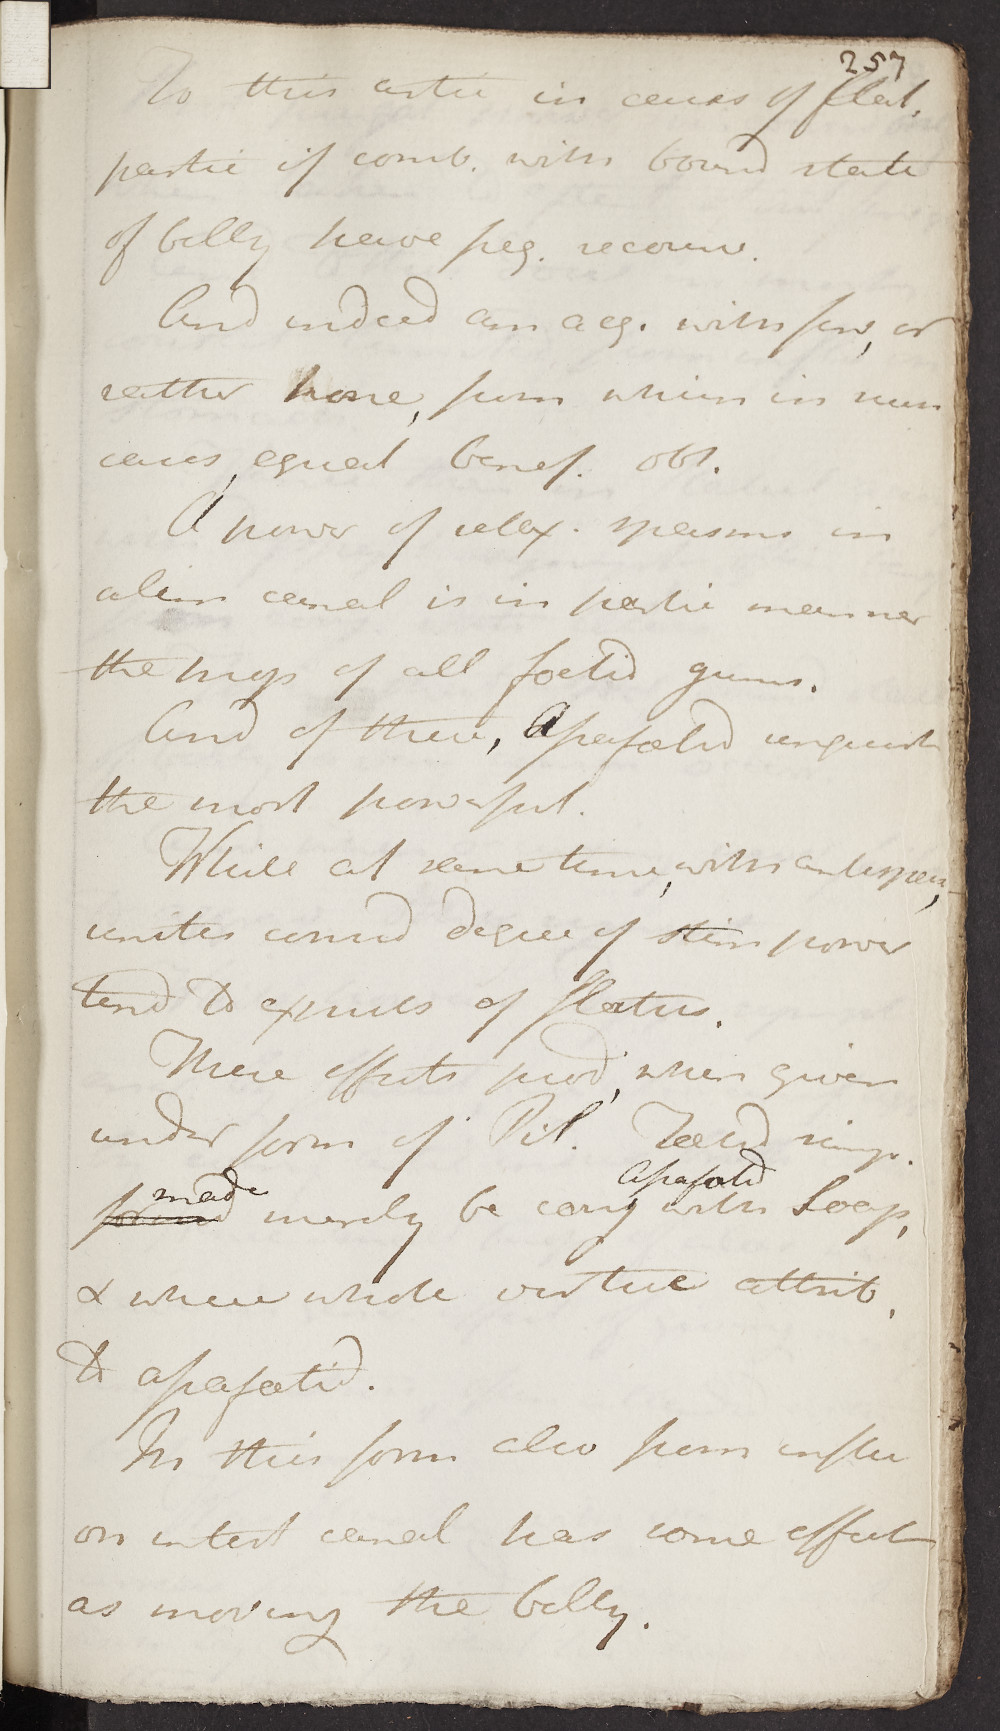 257
To this artic in cases of flat,
partic if comb. with bound state
of belly have freq. recourse.
And indeed am acq. with few, or
rather none, from which in such
cases, equal benef. obt.
A power of relax. spasms in
alim canal is in partic manner
the prop of all foetid gums.
And of these, Assafoetid unquest
the most powerful.
While at same time, with antispas,
unites consid degree of stim power
tend to expuls of flatus.
These effects prod, when given
under form of Pil.
made assafoetid
formed merely be comg with Soap,
& where whole virtue attrib,
to assafoetid.
In this form also from influ
on intest canal has some effect
as moving the belly.